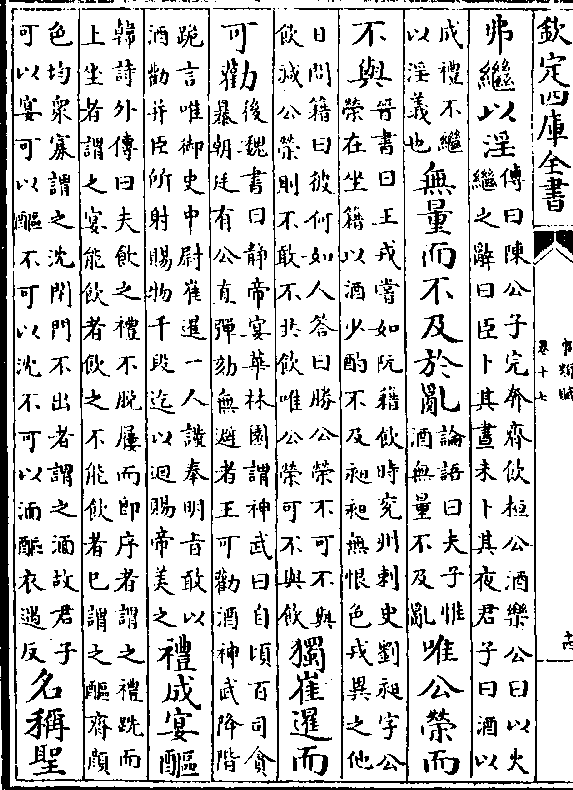 欽定四庫全書
事類賦
卷十七
弗繼以淫
傳曰陳公子完奔齊飲桓公酒樂公曰以火
繼之辭曰臣卜其晝未卜其夜君子曰酒以
成禮不繼
以淫義也
無量而不及於亂
論語曰夫子惟
酒無量不及亂
唯公榮而
不與
晉書曰王戎嘗如阮籍飲時兗州刺史劉昶字公
榮在坐籍以酒少酌不及昶昶無恨色戎異之他
日問籍曰彼何如人答曰勝公榮不可不與
飲減公榮則不敢不共飲唯公榮可不與飲
獨崔暹而
可勸
後魏書曰静帝宴華林園謂神武曰自頃百司貪
暴朝廷有公直彈劾無避者王可勸酒神武降階
跪言唯御史中尉崔暹一人謹奉明旨敢以
酒勸并臣所射賜物千段迄以迴賜帝美之
禮成宴醧
韓詩外傳曰夫飲之禮不脱屨而即序者謂之禮跣而
上坐者謂之宴能飲者飲之不能飲者已謂之醧齊顔
色均衆寡謂之沈閉門不出者謂之湎故君子
可以宴可以醧不可以沈不可以湎醧衣遇反
名稱聖